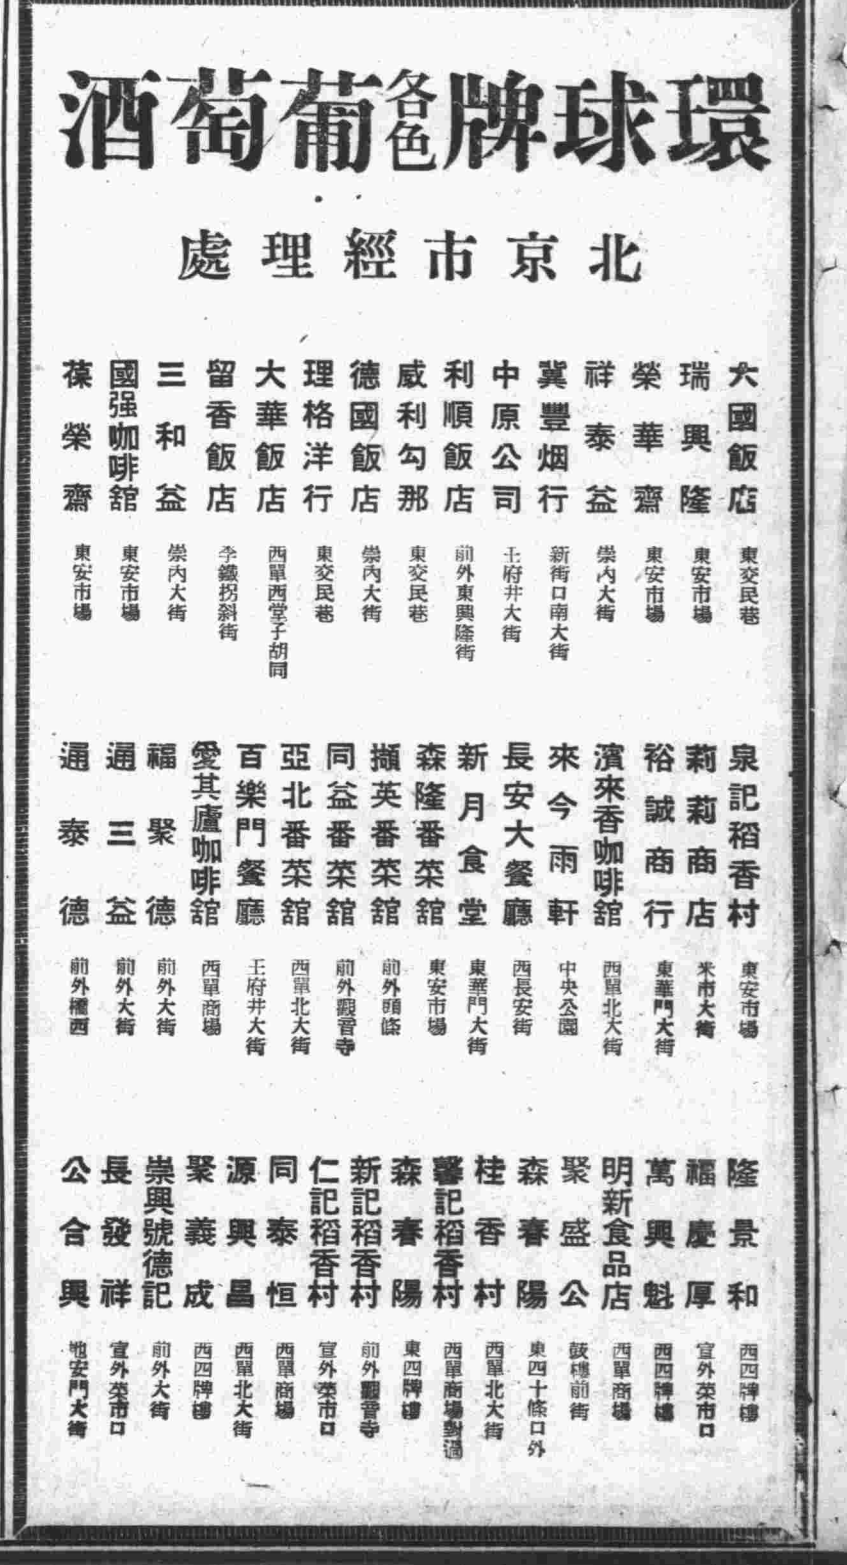 環球牌各色葡萄酒
北京市經理處
六國飯店 東交民巷
瑞興隆 東安市場
榮華齋 東安市場
祥泰益 崇內大街
冀豐烟行 新街口南大街
中原公司 王府井大街
利順飯店 前外東興隆街
威利勾那 東交民巷
德國飯店 崇內大街
理格洋行 東交民巷
大華飯店 西單西堂子胡同
留香飯店 李鐵拐斜街
三和益 崇內大街
國强咖啡舘 東安市場
葆榮齋 東安市場
泉記稻香村 東安市場
莉莉商店 米市大街
裕誠商行 東華門大街
濱來香咖啡舘 西單北大街
來今雨軒 中央公園
長安大餐廳 西長安街
新月食堂 東華門大街
森隆番菜舘 東安市場
擷英番菜舘 前外頭條
同益番菜舘 前外觀音寺
亞北番菜舘 西單北大街
百樂門餐廳 王府井大街
愛其廬咖啡舘 西單商場
福聚德 前外大街
通三益 前外大街
通泰德 前外橋西
隆景和 西四牌樓
福慶厚 宣外菜市口
萬興魁 西四牌樓
明新食品店 西單商場
聚盛公 鼓樓前街
森春陽 東四十條口外
桂香村 西單北大街
馨記稻香村 西單商場對過
森春陽 東四牌樓
新記稻香村 前外觀音寺
仁記稻香村 宣外菜市口
同泰恒 西單商場
源興昌 西單北大街
聚義成 西四牌樓
崇興號德記 前外大街
長發祥 宣外菜市口
公合興 地安門大街